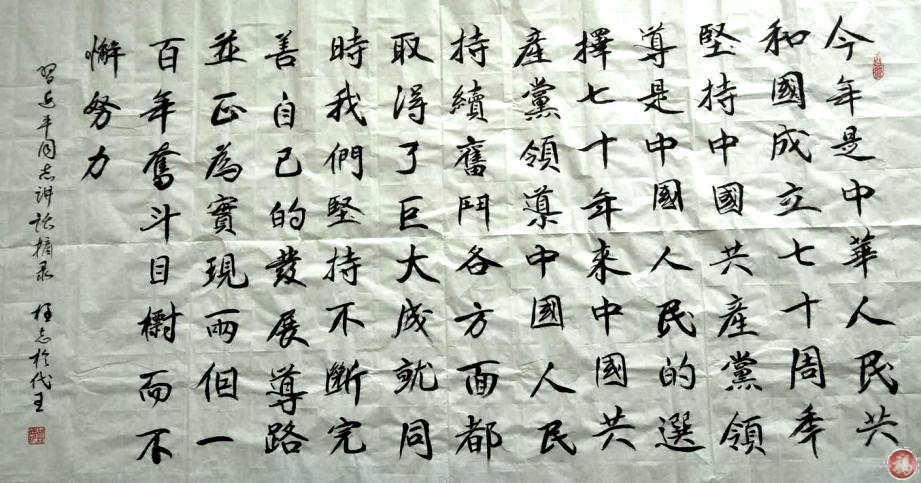 今年是中華人民共
和國成立七十周年
堅持中國共產黨領
導是中國人民的選
擇七十年來中國共
產黨領導中國人民
持續奮鬥各方面都
取得了巨大成就同
時我們堅持不斷完
善自己的發展導路
並正為實現兩個一
百年奮斗目標而不
懈努力
習近平同志讲话摘录 志於代王